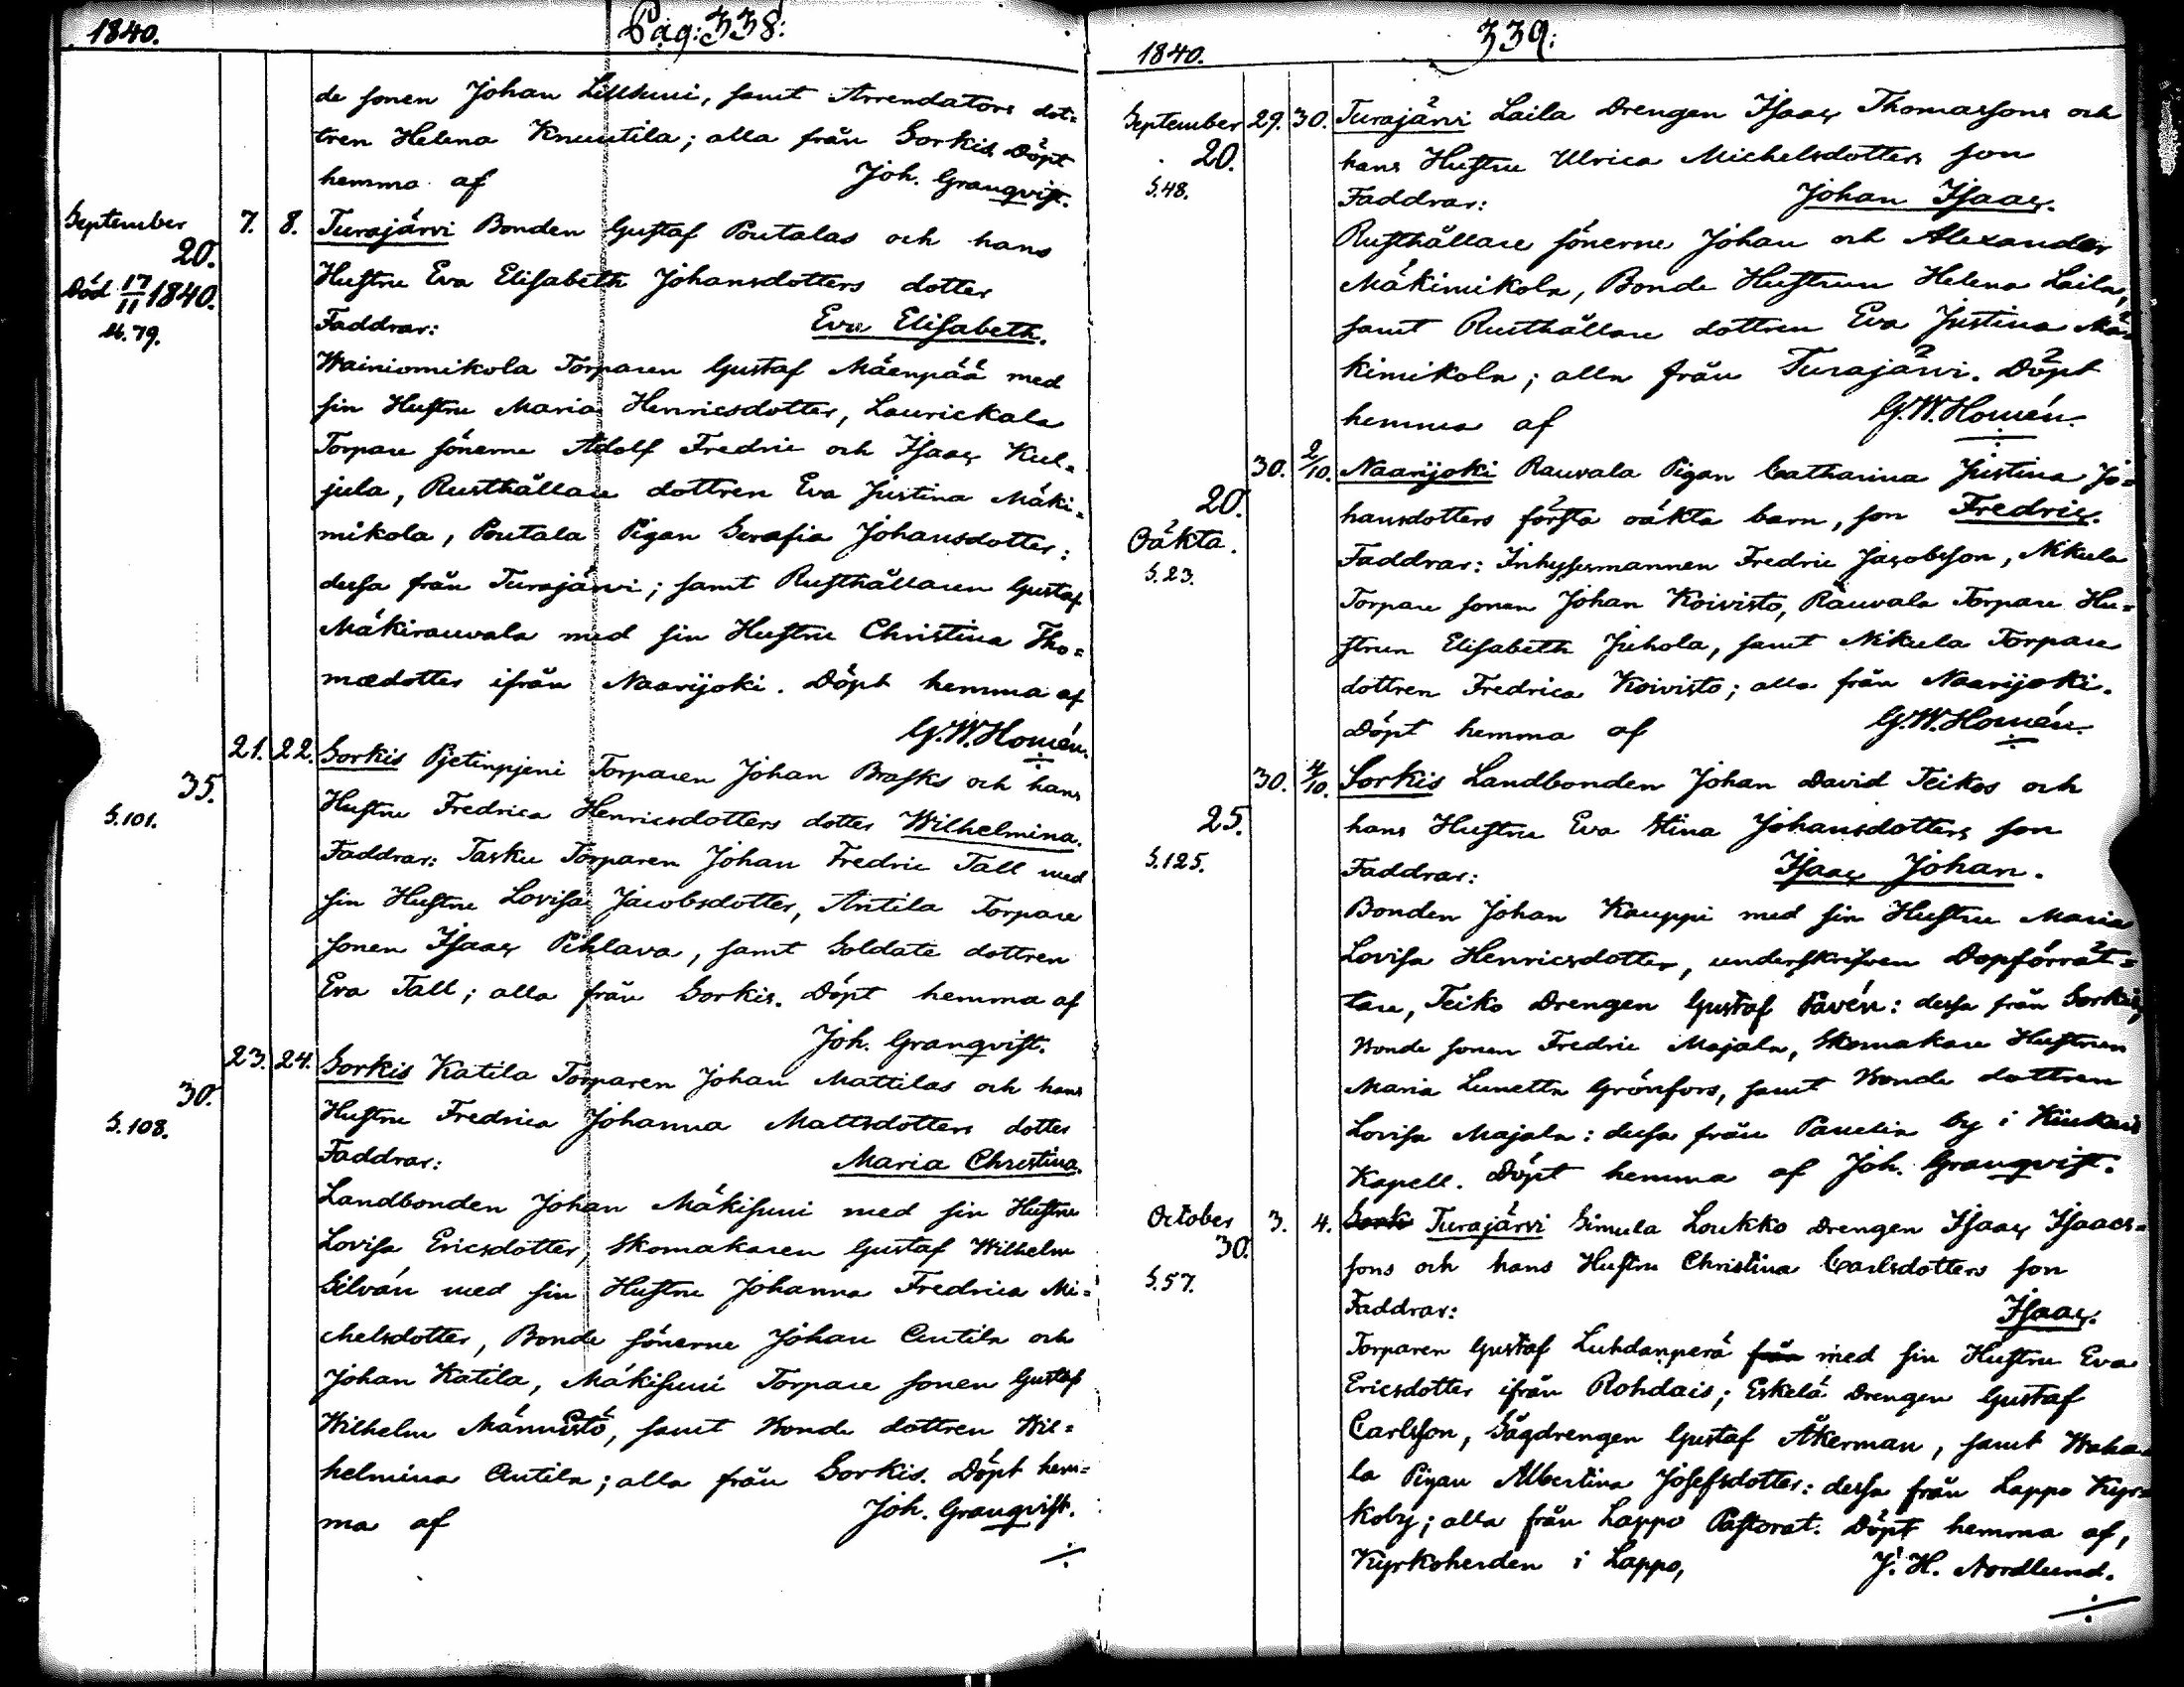 1840.
Pag: 338:
de sonen Johan Lillsuni, samt Arrendators dot=
tren Helena Knuutila; alla från Sorkis Döpt
hemma af Joh. Granqvist.
September 7. 8. Turajärvi Bonden Gustaf Poutalas och hans
20.
Hustru Eva Elisabeth Johansdotters dotter
Död 17/11 1840.
Faddrar: Eva Elisabeth.
M. 79.
Wainiomikola Torparen Gustaf Mäenpää med
sin Hustru Maria Henricsdotter, Laurickala
Torpare sönerne Adolf Fredric och Isaac Kul=
jula, Rusthållare dottren Eva Justina Mäki=
mikola, Poutala Pigan Serafia Johansdotter:
dessa från Turajärvi; samt Rusthållaren Gustaf
Mäkirauvala med sin Hustru Christina Tho=
mædotter ifrån Naarijoki. Döpt hemma af
G.W. Homén.
21. 22. Sorkis Pjetinpjeni Torparen Johan Brasks och hans
35.
Hustru Fredrica Henricsdotters dotter Wilhelmina.
S. 101.
Faddrar: Tasku Torparen Johan Fredric Tall med
sin Hustru Lovisa Jacobsdotter, Antila Torpare
sonen Isaac Pihlava, samt Soldate dottren
Eva Tall; alla från Sorkis. Döpt hemma af
Joh. Granqvist.
23. 24. Sorkis Katila Torparen Johan Mattilas och hans
30.
Hustru Fredrica Johanna Mattsdotters dotter
S. 108.
Faddrar: Maria Christina.
Landbonden Johan Mäkisuni med sin Hustru
Lovisa Ericsdotter, Skomakaren Gustaf Wilhelm
Silván med sin Hustru Johanna Fredrica Mi=
chelsdotter, Bonde sönerne Johan Antila och
Johan Katila, Mäkisuni Torpare sonen Gustaf
Wilhelm Männistö, samt Bonde dottren Wil=
helmina Antila; alla från Sorkis. Döpt hem=
ma af Joh. Granqvist.
339:
1840.
September 29. 30. Turajärvi Laila Drengen Isaac Thomassons och
20.
hans Hustru Ulrica Michelsdotters son
S. 48.
Faddrar: Johan Isaac.
Rusthållare sönerne Johan och Alexander
Mäkimikola, Bonde Hustrun Helena Laila,
samt Rusthållare dottren Eva Justina Mä=
kimikola; alla från Turajärvi. Döpt
hemma af G.W. Homén.
30. 2/10. Naarijoki Rauvala Pigan Catharina Justina Jo=
20.
hansdotters första oäkta barn, son Fredric.
Oäkta.
Faddrar: Inhysesmannen Fredric Jacobsson, Nikula
S. 23.
Torpare sonen Johan Koivisto, Rauvala Torpare Hu=
strun Elisabeth Juhola, samt Nikula Torpare
dottren Fredrica Koivisto; alla från Naarijoki.
Döpt hemma af G.W. Homén.
30. 4/10. Sorkis Landbonden Johan David Teikos och
25.
hans Hustru Eva Stina Johansdotters son
S. 125.
Faddrar: Isaac Johan.
Bonden Johan Kauppi med sin Hustru Maria
Lovisa Henricsdotter, underskrifven Dopförrät=
tare, Teiko Drengen Gustaf Pavén: dessa från Sorkis,
Bonde sonen Fredric Majala, Skomakare Hustrun
Maria Lunetta Grönfors, samt Bonde dottren
Lovisa Majala: dessa från Panelia by i Kiukais
Kapell. Döpt hemma af Joh. Granqvist.
October 3. 4. Sork Turajärvi Simula Loukko Drengen Isaac Isaacs=
30.
sons och hans Hustru Christina Carlsdotters son
S. 57.
Faddrar: Isaac.
Torparen Gustaf Luhdanperä från med sin Hustru Eva
Ericsdotter ifrån Rohdais; Eskelä Drengen Gustaf
Carlsson, Sågdrengen Gustaf Åkerman, samt Waha
la Pigan Albertina Josefsdotter: dessa från Lappo Kyr=
koby; alla från Lappo Pastorat. Döpt hemma af,
Kyrkoherden i Lappo, J. H. Nordlund.